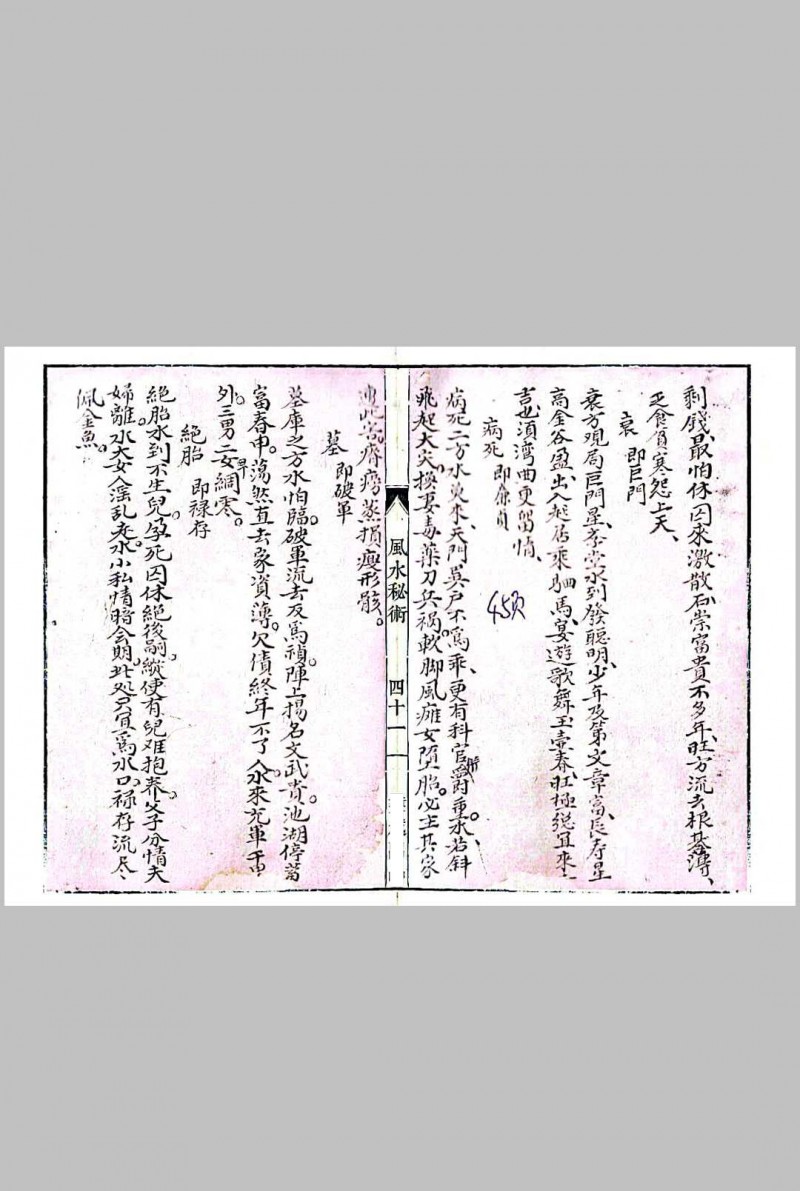 剩錢、最怕休囚來激散、石崇富貴不多年、旺方流去根基薄、
乏食貧寒怨上天、
衰 即巨門
衰方观局巨門星、李堂水到發聰明、少年及第文章富、長寿星
高金谷盈、出入起居乘駟馬、宴遊歌舞玉壺春、旺極總宜來
言也、須湾曲更留情、
病死 即廉貞
病死二方水莫來、天門吳戶不為乖、更有科官爵重、水若斜
飛起大灾、換妻毒藥刀兵禍、軟脚風癱女墮胎。必主其家
遭此害、癆瘵蒸損瘦形骸。
45页
風水秘術
四十一
墓 即破軍
墓庫之方水怕臨。破軍流去反為禎。陣上揚名文武貴。池湖停蓄
富春申。蕩然直去家資薄。欠債終年不了人。水來充軍千里
外。三男二女綢零。
絕胎 即禄存
絕胎水到不生兒。孕死囚休絕後嗣。縱使有兒难抱养。父子分情夫
婦離。水大女人淫乱走。水小私情暗会期。此处只宜為水口。禄存流尽
佩金魚。